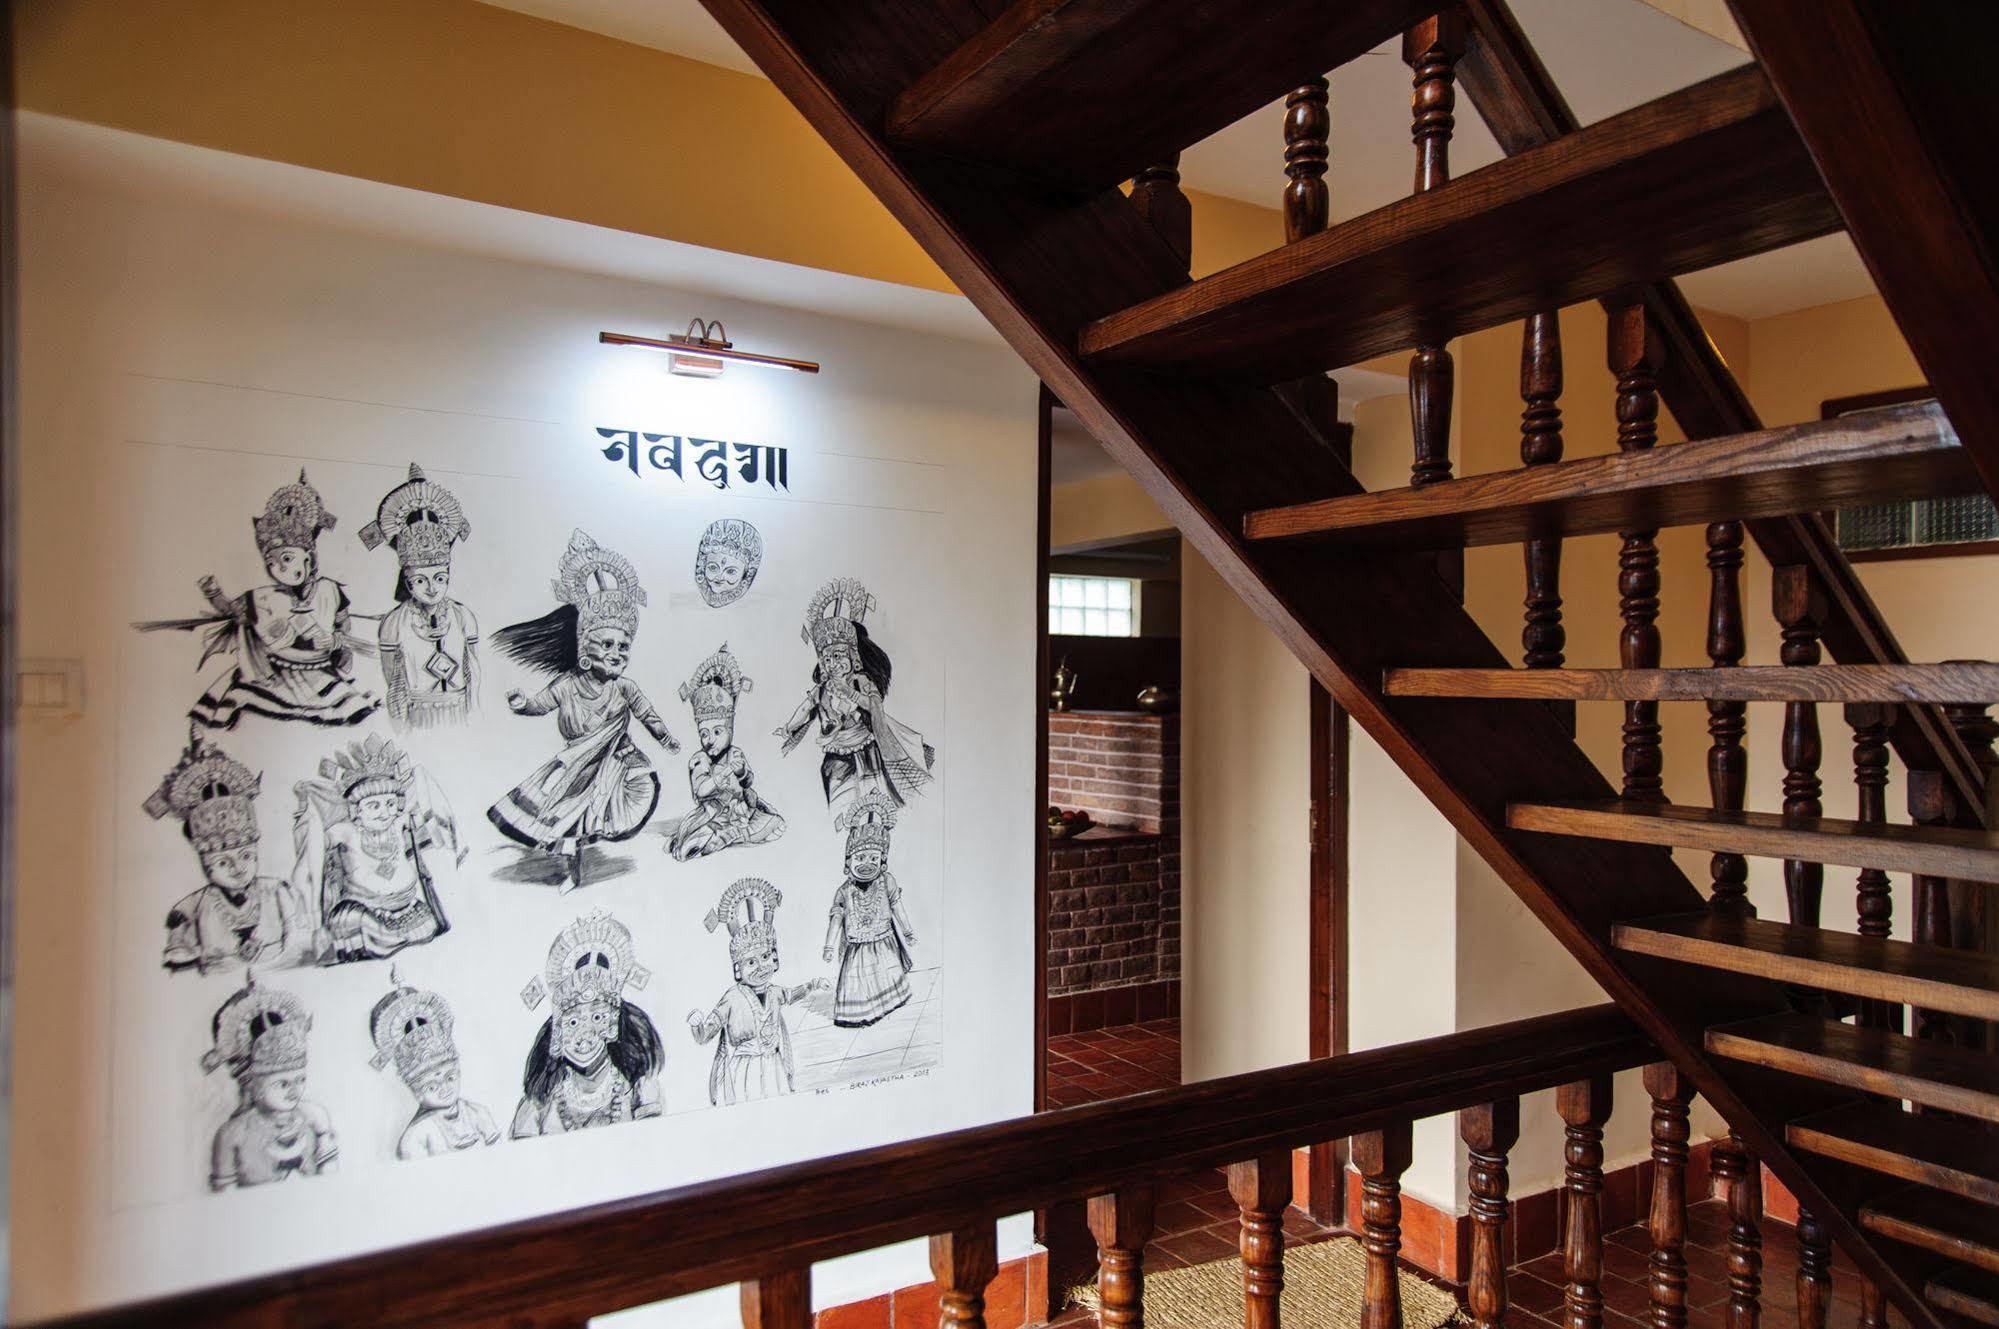 नवदुर्गा
BIRAJ KAYASTHA - 2013